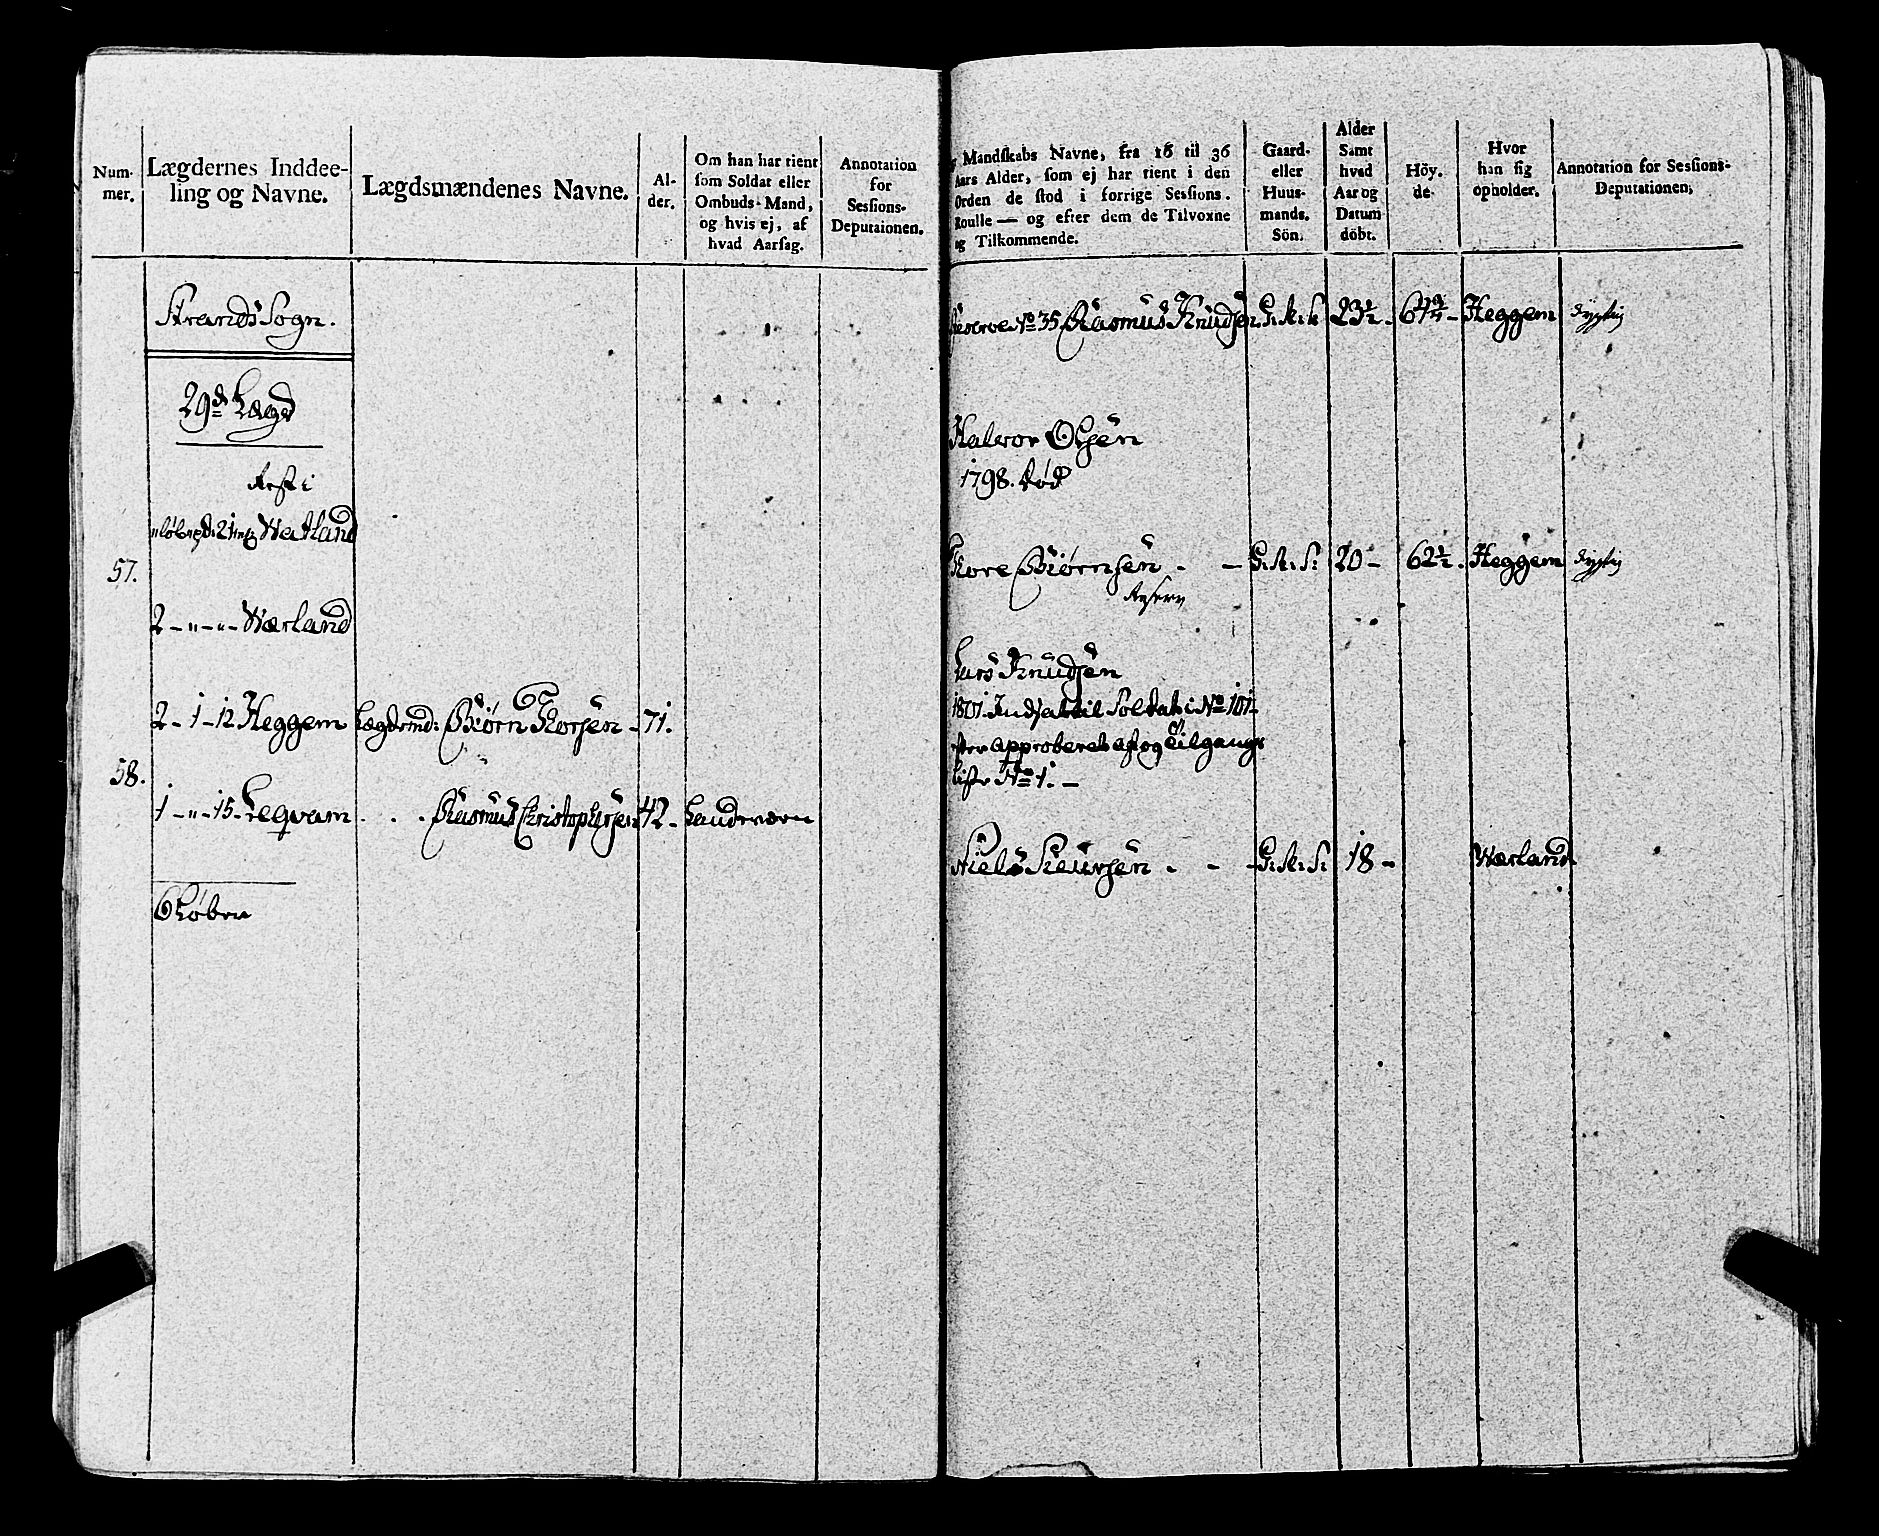 Num-
mer.
Lægdernes Inddee-
ling og Navne.
Lægdsmændenes Navne.
Al-
der.
Om han har tient
som Soldat eller
Ombuds-Mand,
og hvis ej, af
hvad Aarsag.
Annotation
for
Sessions-
Deputaionen.
Strands Sogn.
29de Lægd
Rest i
Watland
57.
2 - " - " - Wærland
2 - 1 - 12 Heggem Lægdsmd: Biørn Thorsen - 71.
58.
1 - " - 15 - Leqvam . . . Rasmus Christophersen 42 - Landeværn
Mandskabs Navne, fra 16 til 36
Aars Alder, som ej har tient i den
Orden de stod i forrige Sessions-
Roulle — og efter dem de Tilvoxne
og Tilkommende.
Gaard-
eller
Huus-
mands-
Sön.
Alder
Samt
hvad
Aar og
Datum
döbt.
Höy-
de-
Hvor
han sig
opholder.
Annotation for Sessions-
Deputationen,
Reserve No 35 Rasmus Knudsen G: M: S 23½ - 64¾ - Heggem dygtig
Halvor Olsen
1798. død
Thore Biørnsen - - G: M: S: 20 - 62½ . Heggem dygtig
Reserv
Lars Knudsen
1801. Indsat til Soldat i No 101
efter approberet af og Tilgangs
Liste No 1. -
Niels Siursen - - G: M: S: 18 - Wærland